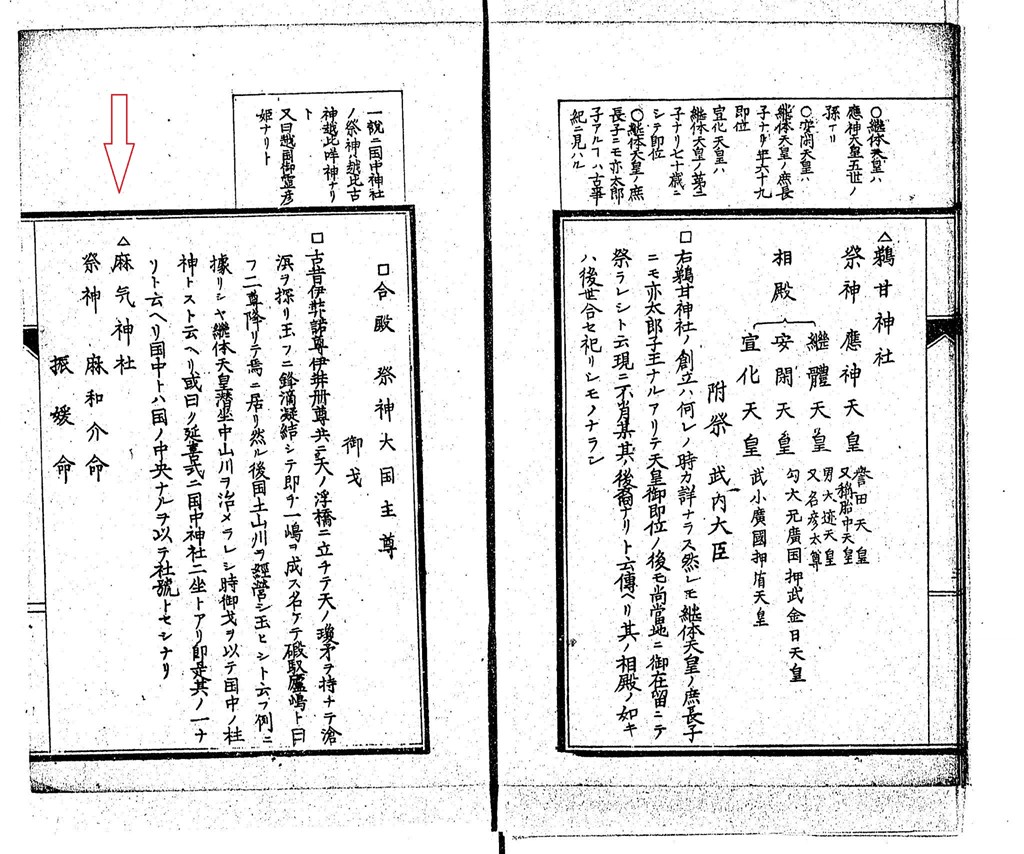 ○継体天皇ハ
應神天皇五世ノ
孫ナリ
○安閑天皇ハ
継体天皇ノ庶長
子ナリ年六十九
即位
宣化天皇ハ
継体天皇ノ第二
子ナリ七十歳ニ
シテ即位
○継体天皇ノ庶
長子ニモ亦太郎
子アルヿハ古事
紀ニ見ハル
△鵜甘神社
祭神 應神天皇 誉田天皇
又稱胎中天皇
相殿 繼體天皇 男大迹天皇
又名彦太尊
安閑天皇 勾大兄廣国押武金日天皇
宣化天皇 武小廣國押盾天皇
附祭 武内大臣
□右鵜甘神社ノ創立ハ何レノ時カ詳ナラス然レモ継体天皇ノ庶長子
ニモ亦太郎子王ナルアリテ天皇御即位ノ後モ尚當地ニ御在留ニテ
祭ラレシト云現ニ不肖集其ノ後裔ナリト云傳ヘリ其ノ相殿ノ如キ
ハ後世合セ祀リシモノナラン
一説ニ国中神社
ノ祭神ハ越比古
神越比咩神ナリ
ト
又曰越国御宝彦
姫ナリト
□合殿 祭神大国主尊
御戈
□古昔伊弉諾尊伊弉册尊共ニ天ノ浮橋ニ立チテ天ノ瓊矛ヲ持ナテ滄
溟ヲ探リ玉フニ鋒滴凝結シテ即チ一嶋ヲ成ス名ケテ磤馭廬嶋ト曰
フ二尊降リテ焉ニ居リ然ル後国土山川ヲ經營シ玉ヒシト云フ例ニ
據リシヤ継体天皇潜坐中山川ヲ治メラレシ時御戈ヲ以テ国中ノ柱
神トスト云ヘリ或曰ク延喜式ニ国中神社二坐トアリ即是其ノ一ナ
リト云ヘリ国中トハ国ノ中央ナルヲ以テ社號トセシナリ
△麻気神社
祭神 麻和介命
振媛命